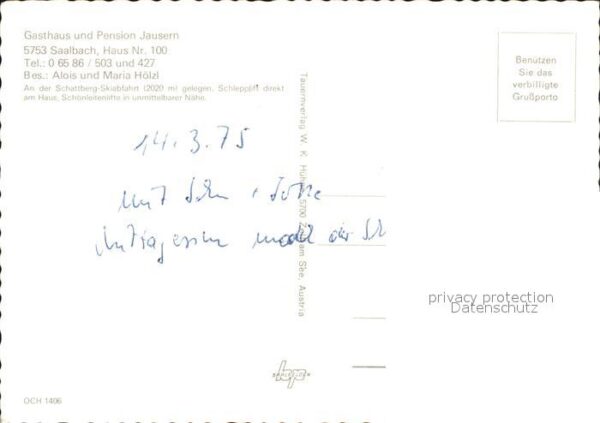 Gasthaus und Pension Jausern
5753 Saalbach, Haus Nr. 100
Tel.: 0 65 86 / 503 und 427
Bes.: Alois und Maria Hölzl
An der Schattberg-Skiabfahrt (2020 m) gelegen, Schlepplift direkt
am Haus, Schönleitenlifte in unmittelbarer Nähe.
Benützen
Sie das
verbilligte
Grußporto
Tauernverlag W. K. 5700 am See, Austria
14.3.75
mit
Mittagessen nach der
privacy protection
Datenschutz
OCH 1406